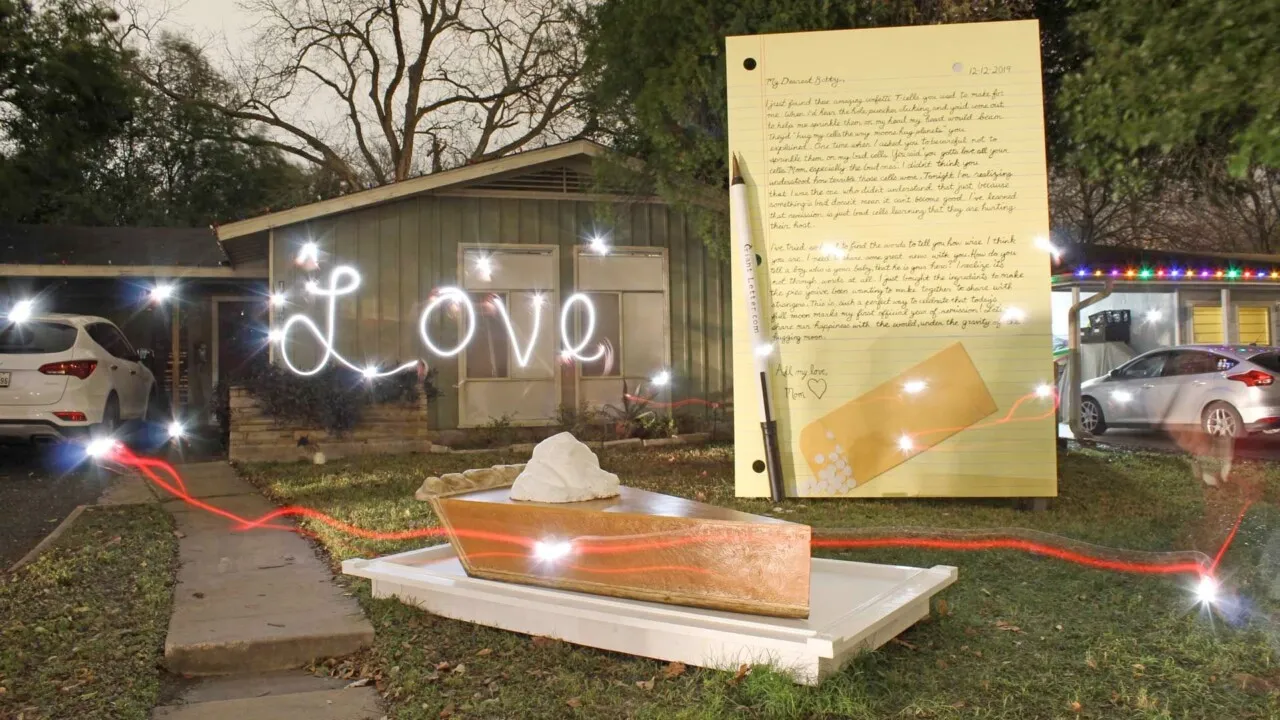 Love
12-12-2019
My Dearest Bobby,
I just found these amazing confetti T-cells you used to make for
me. When I'd hear the hole puncher clicking and you'd come out
to help me sprinkle them on my head my heart would beam.
They'd "hug my cells the way moons hug planets" you
explained. One time when I asked you to be careful not to
sprinkle them on my bad cells, you said "you gotta love all your
cells Mom, especially the bad ones." I didn't think you
understood how terrible those cells were. Tonight I'm realizing
that I was the one who didn't understand that just because
something is bad doesn't mean it can't become good. I've learned
that remission is just bad cells learning that they are hurting
their host.
I've tried so to find the words to tell you how wise I think
you are. I need to share some great news with you. How do you
tell a boy, who is your baby, that he is your hero? I realize its
not through words at all. I just bought the ingredients to make
the pies you've been wanting to make together to share with
strangers. This is such a perfect way to celebrate that today's
full moon marks my first official year of remission! Let's
share our happiness with the world, under the gravity of its
hugging moon.
All my love,
Mom
GiantLetter.com